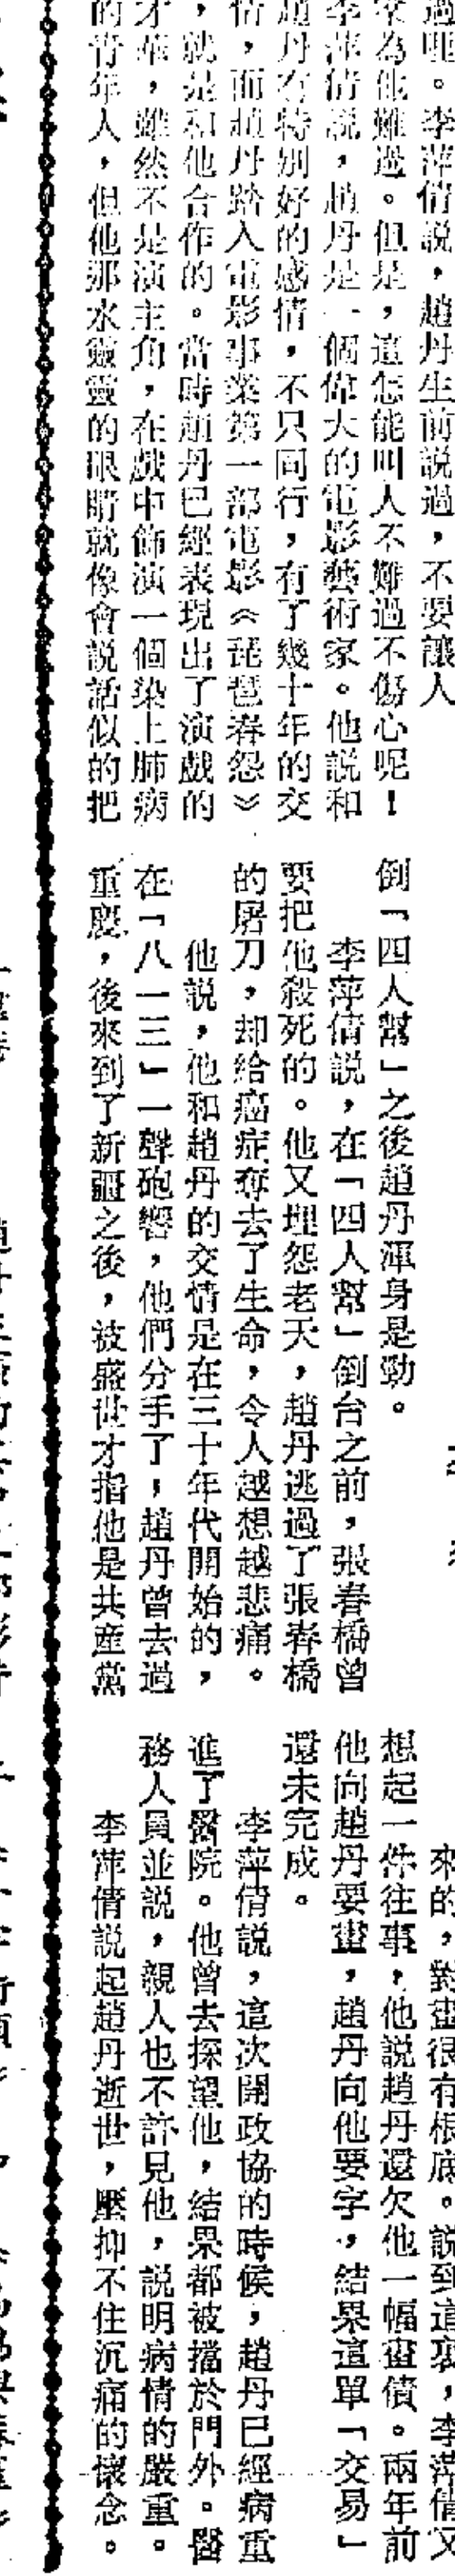 過哑。李萍倩説，趙丹生前説過，不要讓人
為他難過。但是，這怎能叫人不難過不傷心呢！
李萍倩説，趙丹是一個偉大的電影藝術家。他説和
趙丹有特別好的感情，不只同行，有了幾十年的交
情，而趙丹踏入電影事業第一部電影《琵琶春怨》
，就是和他合作的。當時趙丹已經表現出了演戲的
才華，雖然不是演主角，在戲中飾演一個染上肺病
的青年人，但他那水靈靈的眼睛就像會説話似的把
倒「四人幫」之後趙丹渾身是勁。
李萍倩説，在「四人幫」倒台之前，張春橋曾
要把他殺死的。他又埋怨老天，趙丹逃過了張春橋
的屠刀，却給癌症奪去了生命，令人越想越悲痛。
他説，他和趙丹的交情是在三十年代開始的，
在「八一三」一聲砲響，他們分手了，趙丹曾去過
重慶，後來到了新疆之後，被盛世才指他是共產黨
來的，對畫很有根底。説到這裏，李萍倩又
想起一件往事，他説趙丹還欠他一幅畫債。兩年前
他向趙丹要畫，趙丹向他要字，結果這單「交易」
還未完成。
李萍倩説，這次開政協的時候，趙丹已經病重
進了醫院。他曾去探望他，結果都被擋於門外。醫
務人員並説，親人也不許見他，説明病情的嚴重。
李萍倩説起趙丹逝世，壓抑不住沉痛的懷念。